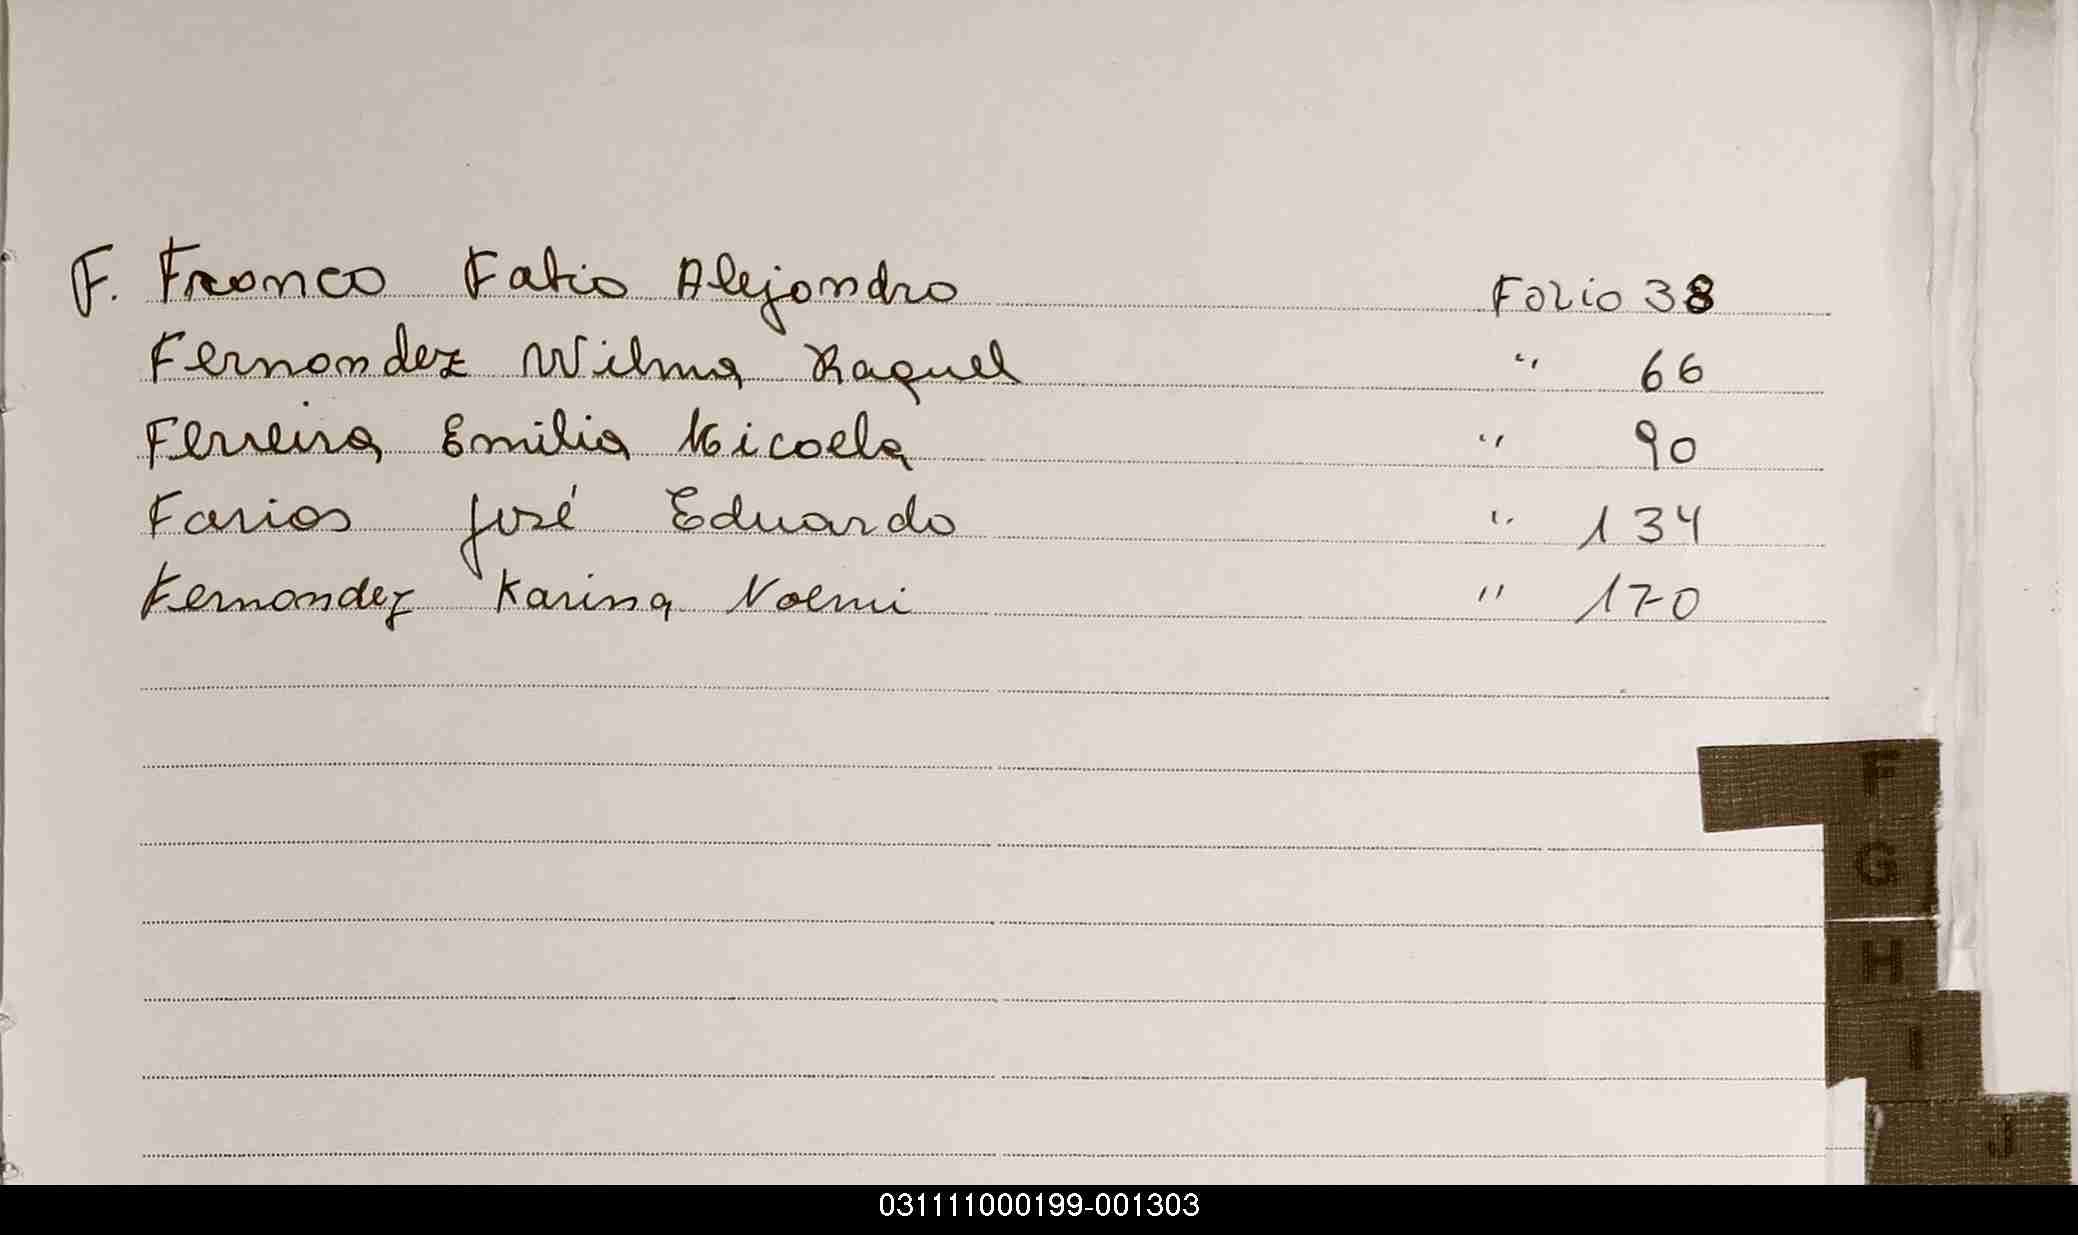 F. Franco Fabio Alejandro Folio 38
Fernandez Wilma Raquel " 66
Ferreira Emilia Micaela " 90
Farias José Eduardo " 134
Fernandez Karina Noemi " 170
F
G
H
I
J
031111000199-001303